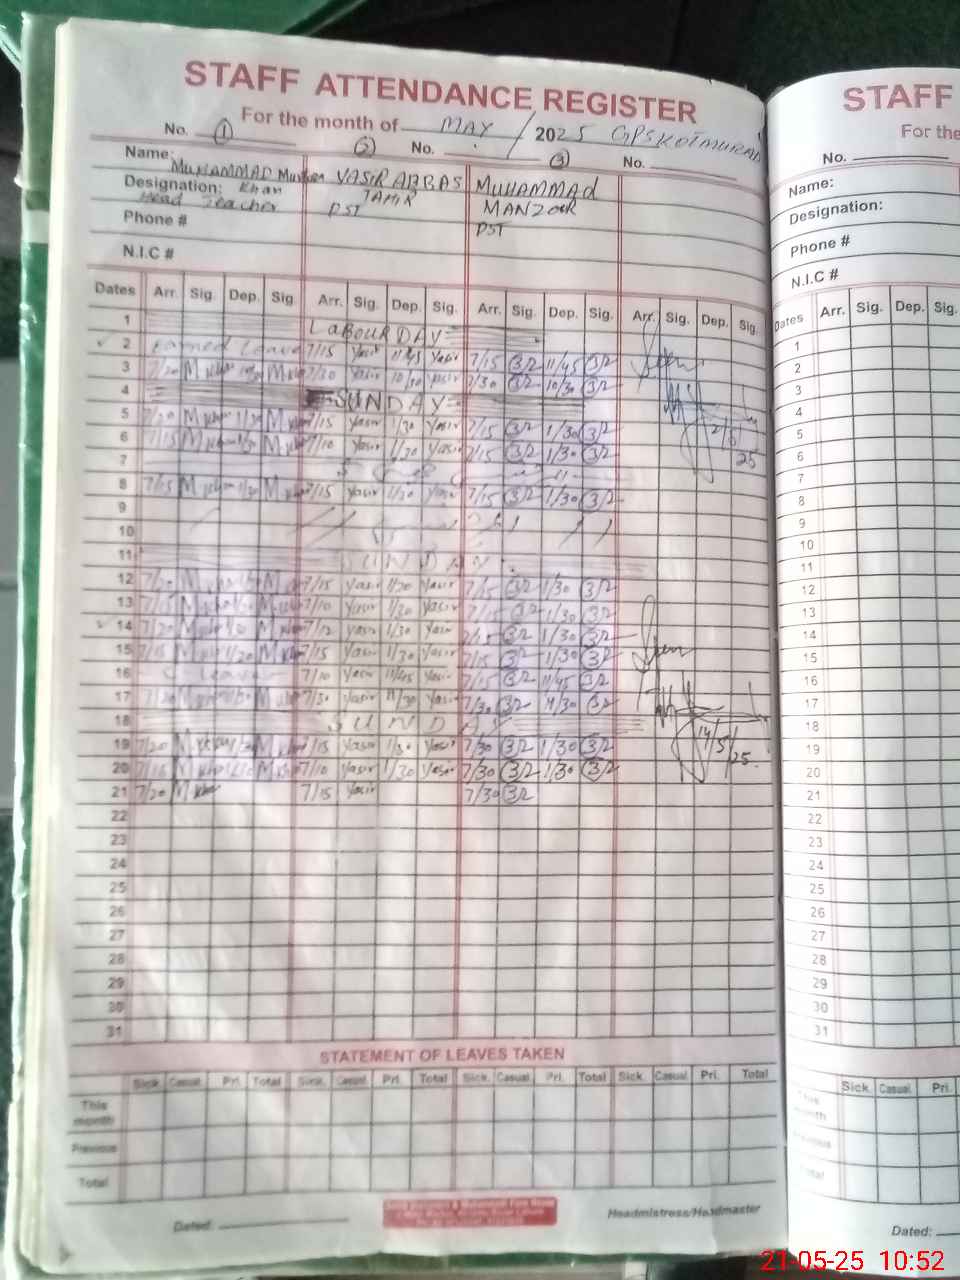 STAFF ATTENDANCE REGISTER
For the month of MAY / 2025 GPS KOTMURAD
No. 1 2 No. 3 No.
Name: MUHAMMAD Khan YASIR ABBAS TAHIR MUHAMMAD MANZOOR
Designation: Head Teacher PST PST
Phone #
N.I.C #
Dates Arr. Sig. Dep. Sig. Arr. Sig. Dep. Sig. Arr. Sig. Dep. Sig. Arr. Sig. Dep. Sig.
1 LABOUR DAY
2 Earned Leave 7/15 Yasir 11/45 Yasir 7/15 11/45
3 7/20 M Khan 10/30 M Khan 7/30 Yasir 10/30 Yasir 7/30 10/30
4 SUNDAY
5 7/20 M Khan 1/30 M Khan 7/15 Yasir 1/30 Yasir 7/15 1/30
6 7/15 M Khan 1/30 M Khan 7/10 Yasir 1/30 Yasir 7/15 1/30
7
8 7/15 M Khan 1/30 M Khan 7/15 Yasir 1/30 Yasir 7/15 1/30
9
10
11 SUNDAY
12 7/20 M Khan 1/30 M Khan 7/15 Yasir 1/30 Yasir 7/15 1/30
13 7/15 M Khan 1/30 M Khan 7/10 Yasir 1/30 Yasir 7/15 1/30
14 7/20 M Khan 1/30 M Khan 7/12 Yasir 1/30 Yasir 7/15 1/30
15 7/15 M Khan 1/30 M Khan 7/15 Yasir 1/30 Yasir 7/15 1/30
16 C Leave 7/10 Yasir 11/45 Yasir 7/15 11/45
17 7/20 M Khan 11/30 M Khan 7/30 Yasir 11/30 Yasir 7/30 11/30
18 SUNDAY
14/5/25
19 7/20 M Khan 1/30 M Khan 7/15 Yasir 1/30 Yasir 7/30 1/30
20 7/15 M Khan 1/30 M Khan 7/10 Yasir 1/30 Yasir 7/30 1/30
21 7/20 M Khan 7/15 Yasir 7/30
22
23
24
25
26
27
28
29
30
31
STATEMENT OF LEAVES TAKEN
Sick. Casual. Pri. Total Sick. Casual. Pri. Total Sick. Casual. Pri. Total Sick. Casual. Pri. Total
This month
Previous
Total
Dated: Headmistress/Headmaster
STAFF
For the
No.
Name:
Designation:
Phone #
N.I.C #
Dates Arr. Sig. Dep. Sig.
1
2
3
4
5
6
7
8
9
10
11
12
13
14
15
16
17
18
19
20
21
22
23
24
25
26
27
28
29
30
31
Sick. Casual. Pri.
This month
Previous
Total
Dated:
21-05-25 10:52